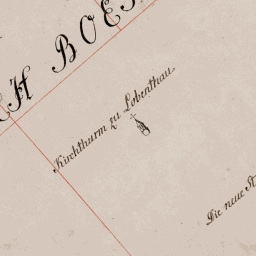 CH BOE
Kirchthurm zu Lobenthau.
Die neue St